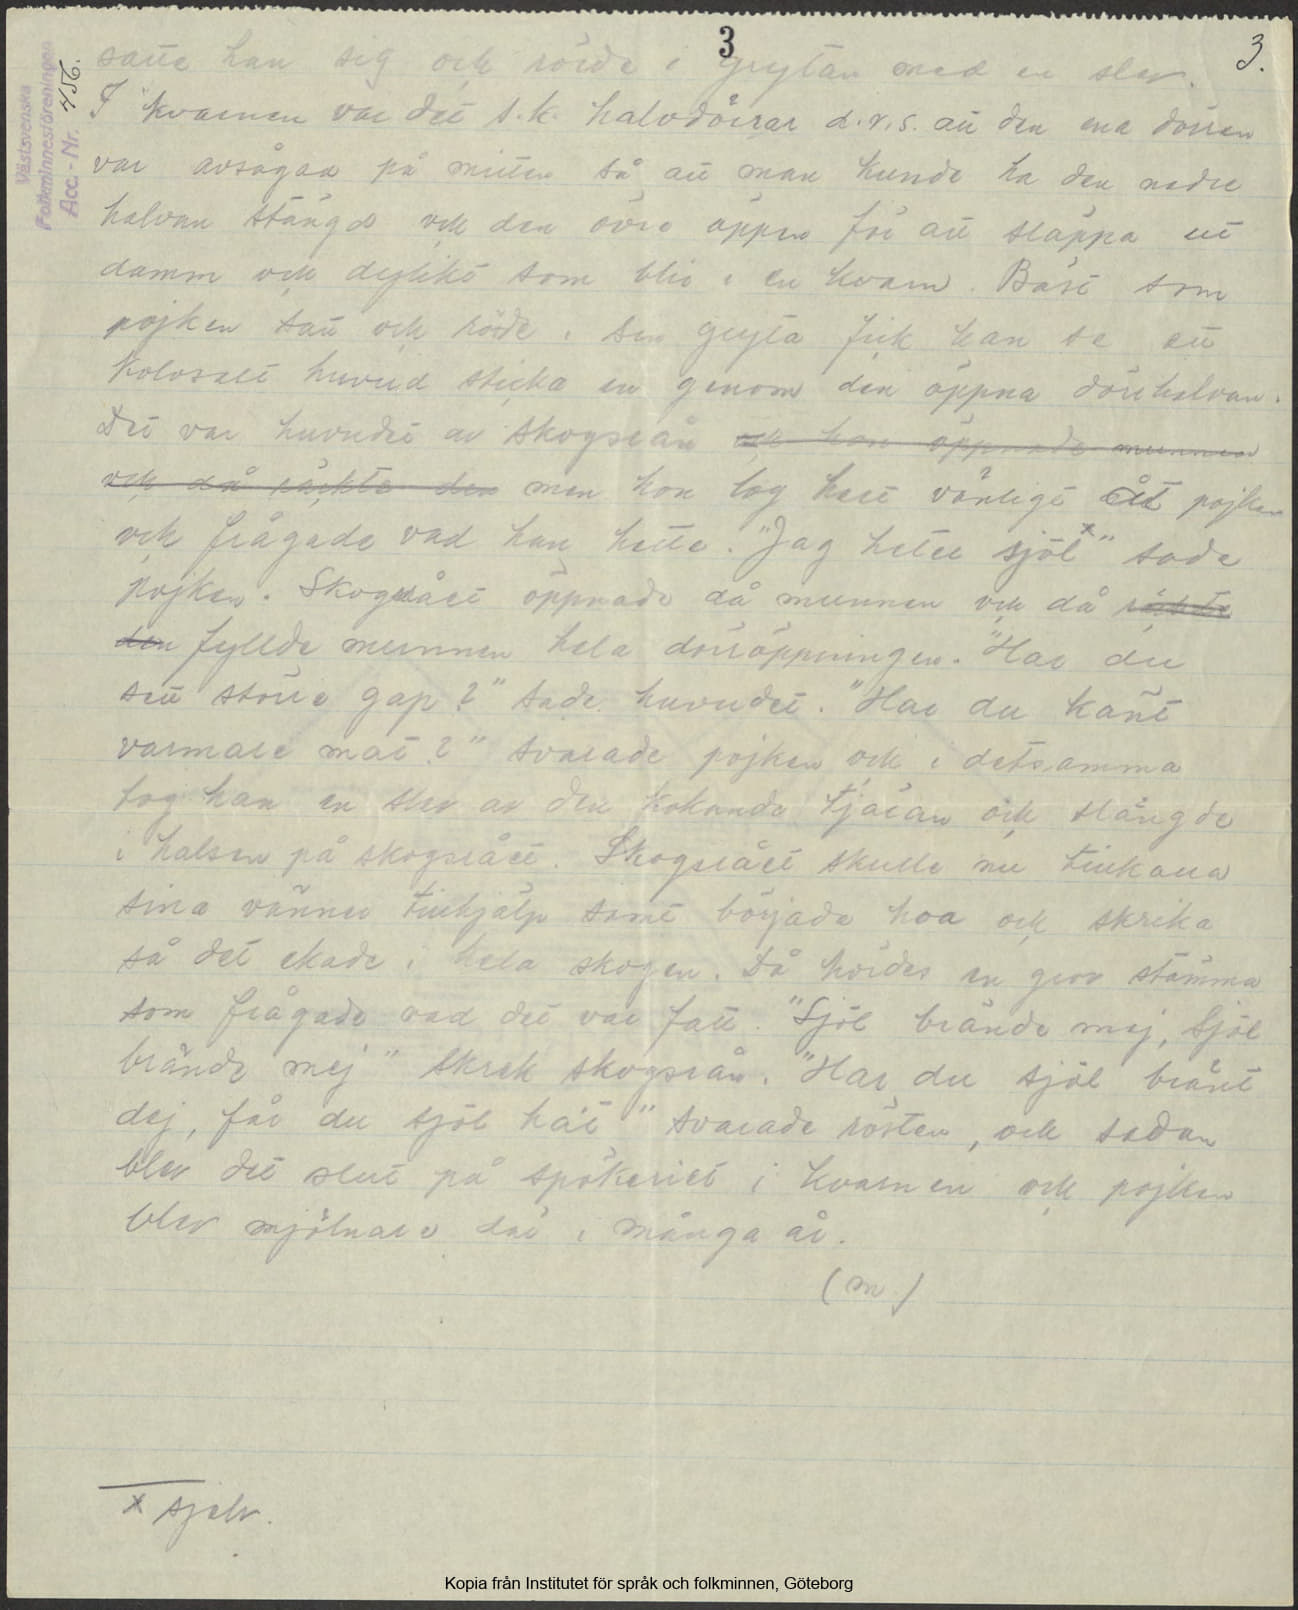 3
3.
Västsvenska
Folkminnesföreningen
Acc.-Nr. 456.
satte han sig och rörde i grytan med en slev.
I kvarnen var det s.k. halvdörrar d.v.s. att den ena dörren
var avsågad på mitten så att man kunde ha den nedre
halvan stängd och den övre öppen för att släppa ut
damm och dylikt som blir i en kvarn. Bäst som
pojken satt och rörde i sin gryta fick han se ett
kolossalt huvud sticka in genom den öppna dörrhalvan.
Det var huvudet av skogsrån och hon öppnade munnen
och då räckte den men hon log helt vänligt åt pojken
och frågade vad han hette. "Jag heter sjöl x" sade
pojken. Skogsrået öppnade då munnen och då räckte
den fyllde munnen hela dörröppningen. "Har du
sett större gap?" sade huvudet. "Har du känt
varmare mat?" svarade pojken och i detsamma
tog han en slev av den kokande tjäran och slängde
i halsen på skogsrået. Skogsrået skulle nu tillkalla
sina vänner till hjälp samt började hoa och skrika
så det ekade i hela skogen. Då hördes en grov stämma
som frågade vad det var fatt. "Sjöl brände mej, Sjöl
brände mej" skrek skogsrån. "Har du sjöl bränt
dej, får du sjöl ha't" svarade rösten, och sedan
blev det slut på spökeriet i kvarnen och pojken
blev mjölnare där i många år.
(m.)
x själv.
Kopia från Institutet för språk och folkminnen, Göteborg